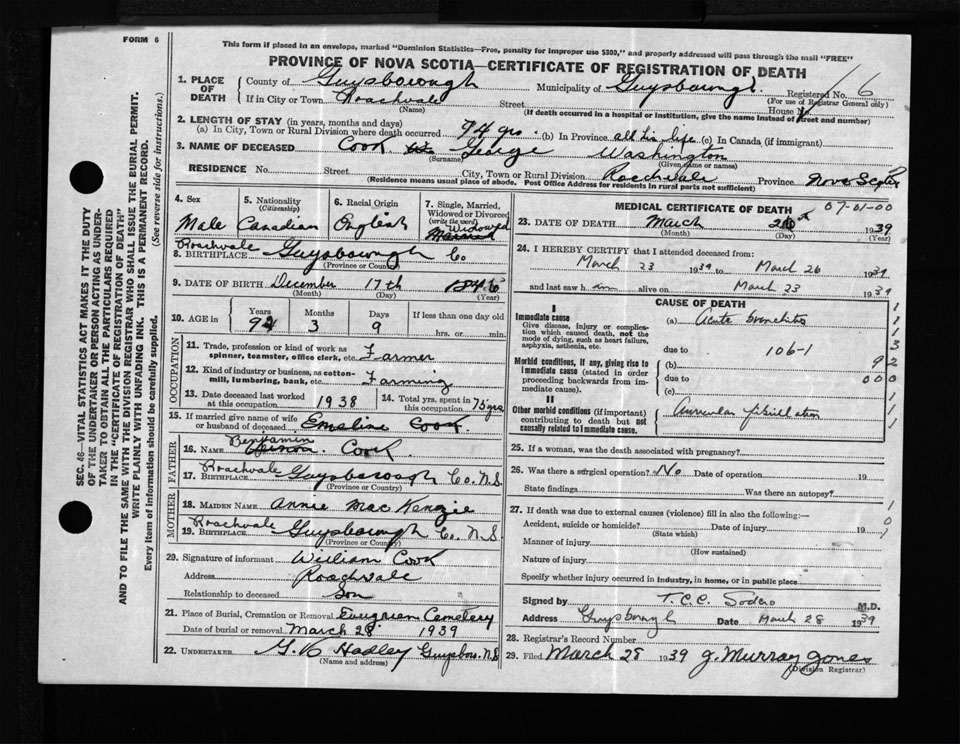 FORM 6
This form if placed in an envelope, marked "Dominion Statistics—Free, penalty for improper use $300," and properly addressed will pass through the mail "FREE"
PROVINCE OF NOVA SCOTIA—CERTIFICATE OF REGISTRATION OF DEATH
1. PLACE OF DEATH County of Guysborough Municipality of Guysborough Registered No. 6
(For use of Registrar General only)
If in City or Town Roachvale Street House No.
(Name) (If death occurred in a hospital or institution, give the name instead of street and number)
2. LENGTH OF STAY (in years, months and days)
(a) In City, Town or Rural Division where death occurred 94 yrs. (b) In Province all his life (c) In Canada (if immigrant)
3. NAME OF DECEASED Cook George Washington
(Surname) (Given name or names)
RESIDENCE No. Street City, Town or Rural Division Roachvale Province Nova Scotia
(Residence means usual place of abode. Post Office Address for residents in rural parts not sufficient)
4. Sex 5. Nationality (Citizenship) 6. Racial Origin 7. Single, Married, Widowed or Divorced (write the word)
Male Canadian English Married Widowed
8. BIRTHPLACE Roachvale Guysborough Co
(Province or Country)
9. DATE OF BIRTH December 17th
(Month) (Day) (Year)
10. AGE in Years Months Days If less than one day old
94 3 9 hrs. or min.
OCCUPATION
11. Trade, profession or kind of work as spinner, teamster, office clerk, etc. Farmer
12. Kind of industry or business, as cotton-mill, lumbering, bank, etc. Farming
13. Date deceased last worked at this occupation 1938 14. Total yrs. spent in this occupation 75 yrs
15. If married give name of wife or husband of deceased Emeline Cook
FATHER
16. NAME Benjamin Cook
17. BIRTHPLACE Roachvale Guysborough Co. N.S.
(Province or Country)
MOTHER
18. MAIDEN NAME Annie MacKenzie
19. BIRTHPLACE Roachvale Guysborough Co. N.S.
(Province or Country)
20. Signature of informant William Cook
Address Roachvale
Relationship to deceased Son
21. Place of Burial, Cremation or Removal Evergreen Cemetery
Date of burial or removal March 28 1939
22. UNDERTAKER Hadley Guysboro. N.S.
(Name and address)
MEDICAL CERTIFICATE OF DEATH 07-01-00
23. DATE OF DEATH March 26 1939
(Month) (Day) (Year)
24. I HEREBY CERTIFY that I attended deceased from:
March 23 1939 to March 26 1939
and last saw h im alive on March 23 1939
CAUSE OF DEATH
I
Immediate cause (a) Acute bronchitis
Give disease, injury or complication which caused death, not the mode of dying, such as heart failure, asphyxia, asthenia, etc.
due to 106-1
Morbid conditions, if any, giving rise to immediate cause (stated in order proceeding backwards from immediate cause). (b) 92
due to 000
(c)
II
Other morbid conditions (if important) contributing to death but not causally related to immediate cause. Auricular fibrillation
25. If a woman, was the death associated with pregnancy?
26. Was there a surgical operation? No Date of operation 19
State findings Was there an autopsy?
27. If death was due to external causes (violence) fill in also the following:—
Accident, suicide or homicide? Date of injury 19
(State which)
Manner of injury
(How sustained)
Nature of injury
Specify whether injury occurred in industry, in home, or in public place
Signed by T.C.C. Sodero M.D.
Address Guysborough Date March 28 1939
28. Registrar's Record Number
29. Filed March 28 1939 J. Murray Jones
(Division Registrar)
SEC. 46—VITAL STATISTICS ACT MAKES IT THE DUTY
OF THE UNDERTAKER OR PERSON ACTING AS UNDERTAKER TO OBTAIN ALL THE PARTICULARS REQUIRED
IN THE "CERTIFICATE OF REGISTRATION OF DEATH"
AND TO FILE THE SAME WITH THE DIVISION REGISTRAR WHO SHALL ISSUE THE BURIAL PERMIT.
WRITE PLAINLY WITH UNFADING INK. THIS IS A PERMANENT RECORD.
Every item of information should be carefully supplied. (See reverse side for instructions.)